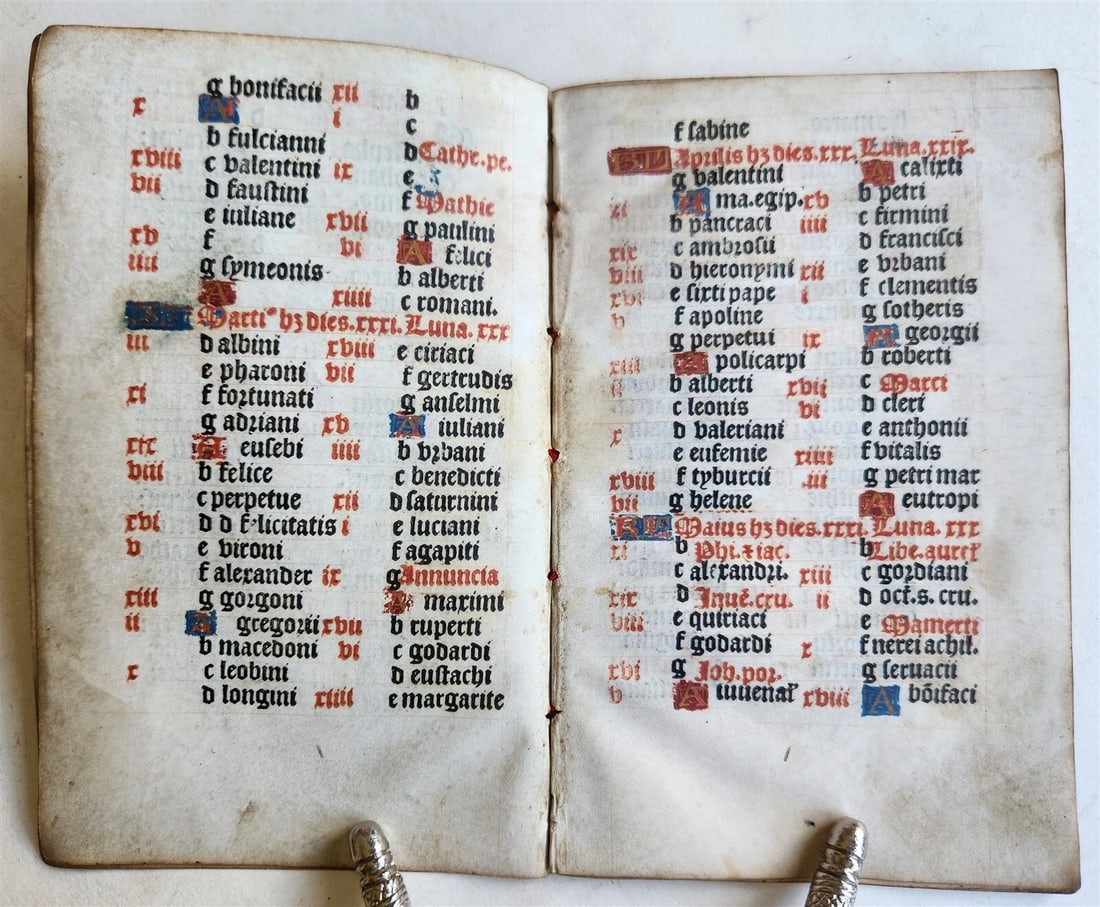 g bonifacii xii b
x A i c
b fulcianni d Cathr.pe.
xviii c valentini ix e
vii d faustini f Mathie
e iuliane xvii g paulini
xv f vi A felici
iiii g symeonis b alberti
A xiiii c romani.
Marti⁹ hꝫ dies.xxxi. Luna.xxx
iii d albini xviii e ciriaci
e pharoni vii f gertrudis
xi f fortunati g anselmi
g adriani xv A iuliani
xix A eusebi iiii b vrbani
viii b felice c benedicti
c perpetue xii d saturnini
xvi d d felicitatis i e luciani
v e vironi f agapiti
f alexander ix g Annuncia
xiii g gorgoni A maximi
ii A gregorii xvii b ruperti
b macedoni vi c godardi
x c leobini d eustachi
d longini xiiii e margarite
f sabine
KL Aprilis hꝫ dies.xxx. Luna.xxix.
g valentini A calixti
xi A ma.egip. xv b petri
b pancraci iiii c firmini
xix c ambrosii d francisci
viii d hieronymi xii e vrbani
xvi e sixti pape i f clementis
v f apoline g sotheris
g perpetui ix A georgii
xiii A policarpi b roberti
ii b alberti xvii c Marci
c leonis vi d cleri
x d valeriani e anthonii
e eufemie xiiii f vitalis
xviii f tyburcii .iii g petri mar
vii g helene A eutropi
KL Maius hꝫ dies.xxxi. Luna. xxx
xi b Phi.⁊ iac. b Libe.aureł
c alexandri. xiii c gordiani
xix d Inuē.cru. ii d oct.s. cru.
viii e quiriaci e Mamerti
f godardi x f nerei achil.
xvi g Joh.por. g seruacii
v A iuuenał xviii A bōifaci